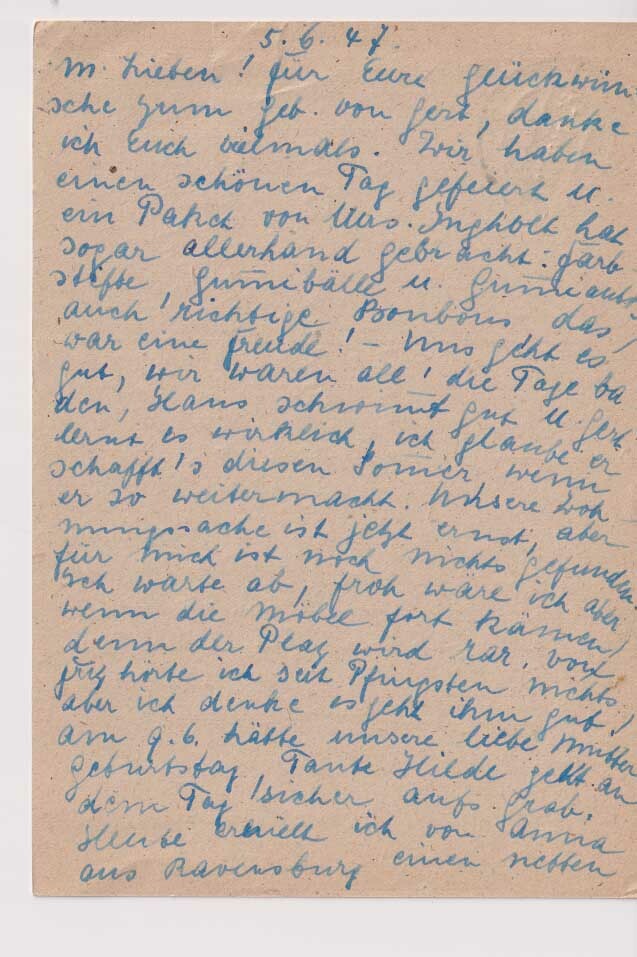 5.6.47.
M. Lieben! für Eure Glückwün
sche zum Geb. von Gert, danke
ich Euch vielmals. Wir haben
einen schönen Tag gefeiert u.
ein Paket von Mrs. Ingholt hat
sogar allerhand gebracht: Farb
stifte Gum̄ibälle u. Gum̄iauto
auch richtige Bonbons das
war eine Freude! – Uns geht es
gut, wir waren all' die Tage ba
den, Hans schwim̄t gut u. Gert
lernt es wirklich, ich glaube er
schafft's diesen Som̄er wenn
er so weitermacht. Unsere Woh-
nungssache ist jetzt ernst, aber
für mich ist noch nichts gefunden
Ich warte ab, froh wäre ich aber
wenn die Möbel fort kämen,
denn der Platz wird rar. von
Fritz hörte ich seit Pfingsten nichts,
aber ich denke es geht ihm gut.
am 9.6. hätte unsere liebe Mutter
Geburtstag, Tante Hilde geht an
dem Tag sicher aufs Grab.
Heute erhielt ich von Anna
aus Ravensburg einen netten